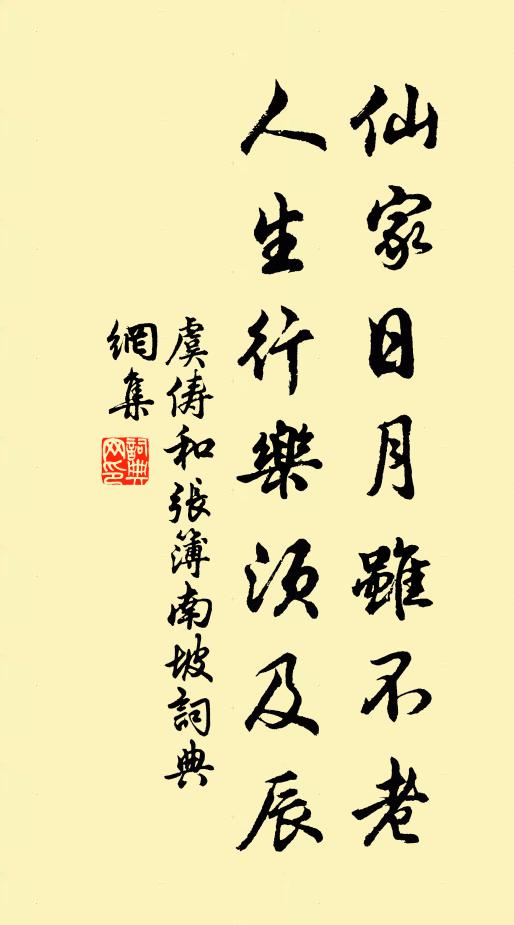 仙家日月雖不老
人生行樂須及辰
虞儔和張簿南坡詞典
網集
詞典網印